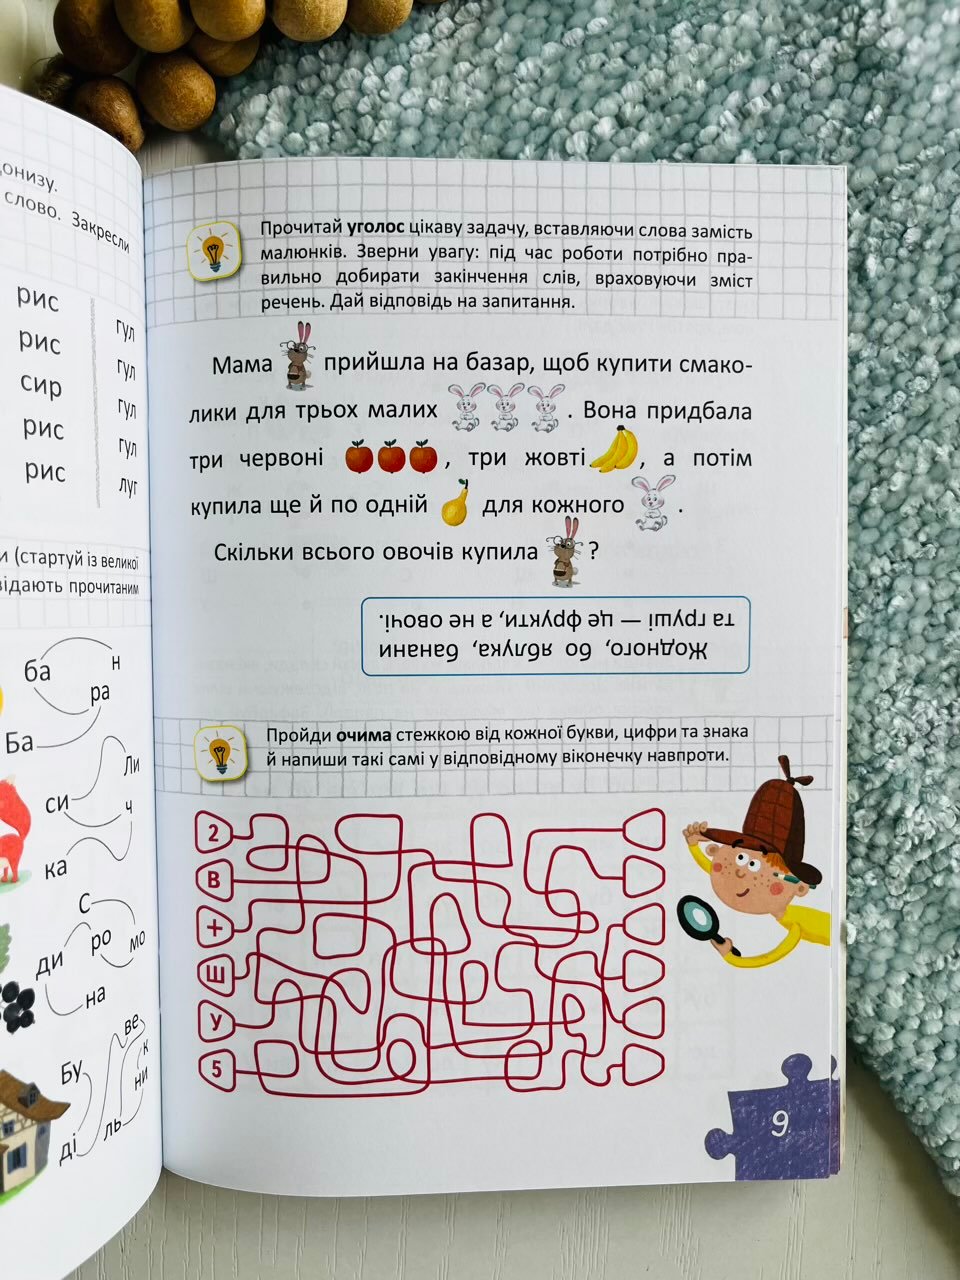 онизу.
слово. Закресли
рис
рис
сир
рис
рис
гул
гул
гул
гул
луг
и (стартуй із великої
відають прочитаним
ба
н
ра
Ба
Ли
си
ч
ка
с
ди
ро
мо
на
ве
Бу
к
ни
ді
ль
Прочитай уголос цікаву задачу, вставляючи слова замість
малюнків. Зверни увагу: під час роботи потрібно пра-
вильно добирати закінчення слів, враховуючи зміст
речень. Дай відповідь на запитання.
Мама прийшла на базар, щоб купити смако-
лики для трьох малих . Вона придбала
три червоні , три жовті , а потім
купила ще й по одній для кожного .
Скільки всього овочів купила ?
Жодного, бо яблука, банани
та груші — це фрукти, а не овочі.
Пройди очима стежкою від кожної букви, цифри та знака
й напиши такі самі у відповідному віконечку навпроти.
2
В
+
Ш
У
5
9